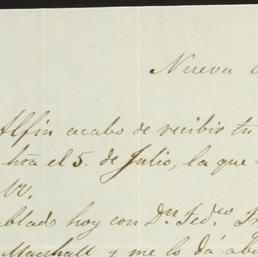 Nueva
Alfin acabo de recibir tu
hta el 5. de Julio, la que
VV.
blado hoy con Dn. Fedco.
Marshall y me lo dá